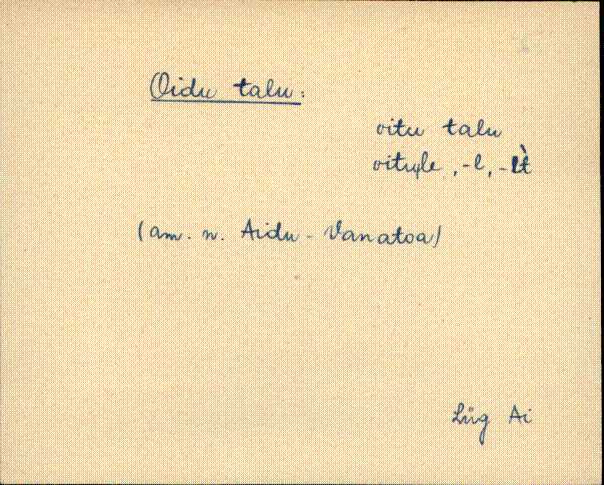 Oidu talu:
oitu talu
oitule, -l, -lt̀
(am. n. Aidu - Vanatoa)
Lüg Ai